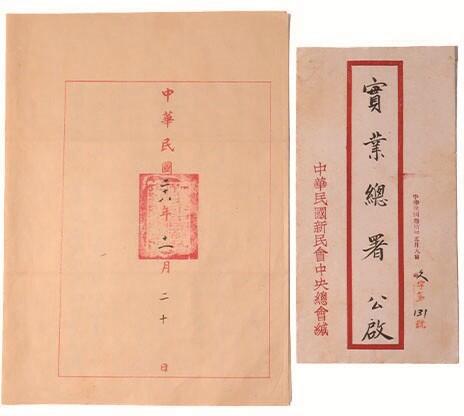 中華民國 年 月二十日
實業總署 公啟
中華民國新民會中央總會緘
字第131號